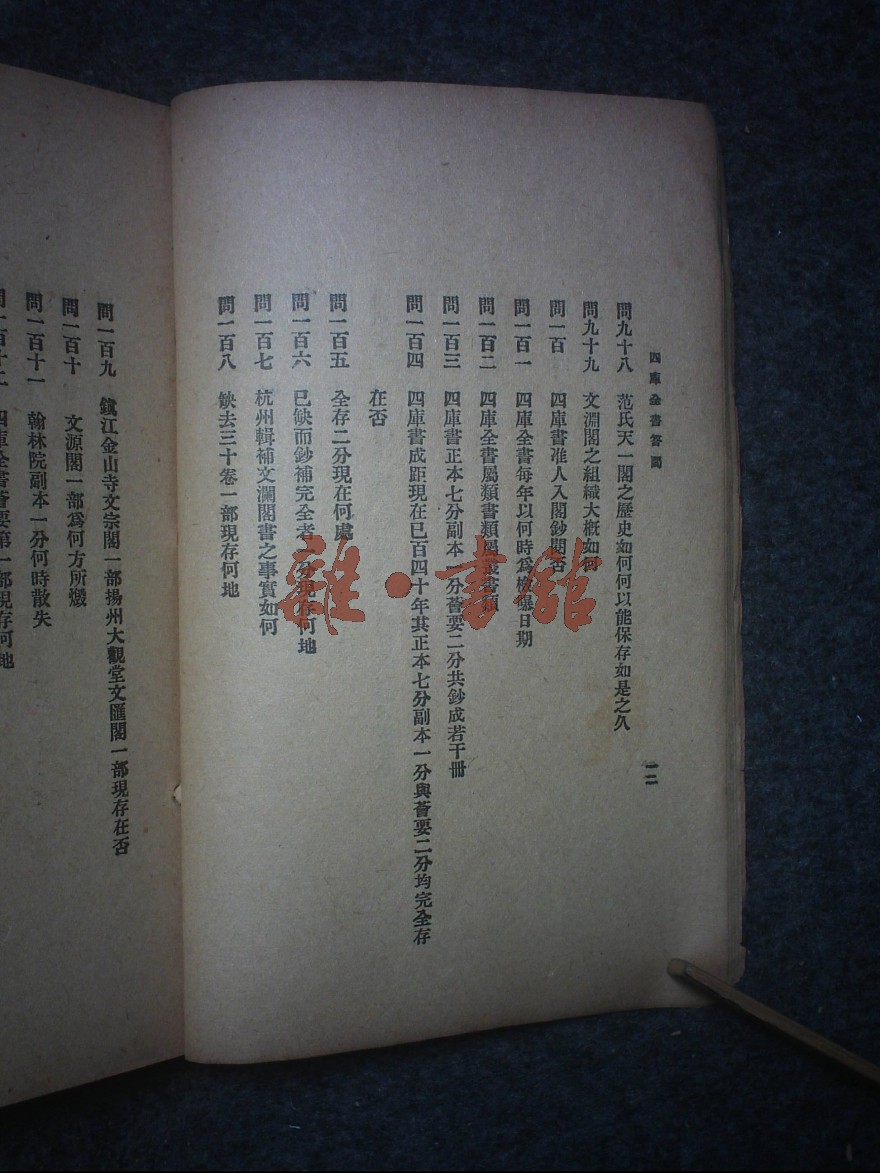 四庫全書答問
一二
問九十八　范氏天一閣之歷史如何何以能保存如是之久
問九十九　文淵閣之組織大概如何
問一百　四庫書准人入閣鈔閱否
問一百一　四庫全書每年以何時爲檢曝日期
問一百二　四庫全書屬類書類屬叢書類
問一百三　四庫書正本七分副本一分薈要二分共鈔成若干冊
問一百四　四庫書成距現在已百四十年其正本七分副本一分與薈要二分均完全存
在否
問一百五　全存二分現在何處
問一百六　已缺而鈔補完全者二分現存何地
問一百七　杭州輯補文瀾閣書之事實如何
問一百八　缺去三十卷一部現存何地
問一百九　鎮江金山寺文宗閣一部揚州大觀堂文匯閣一部現存在否
問一百十　文源閣一部爲何方所燬
問一百十一　翰林院副本一分何時散失
問一百十二　四庫全書薈要第一部現存何地
雜·書館